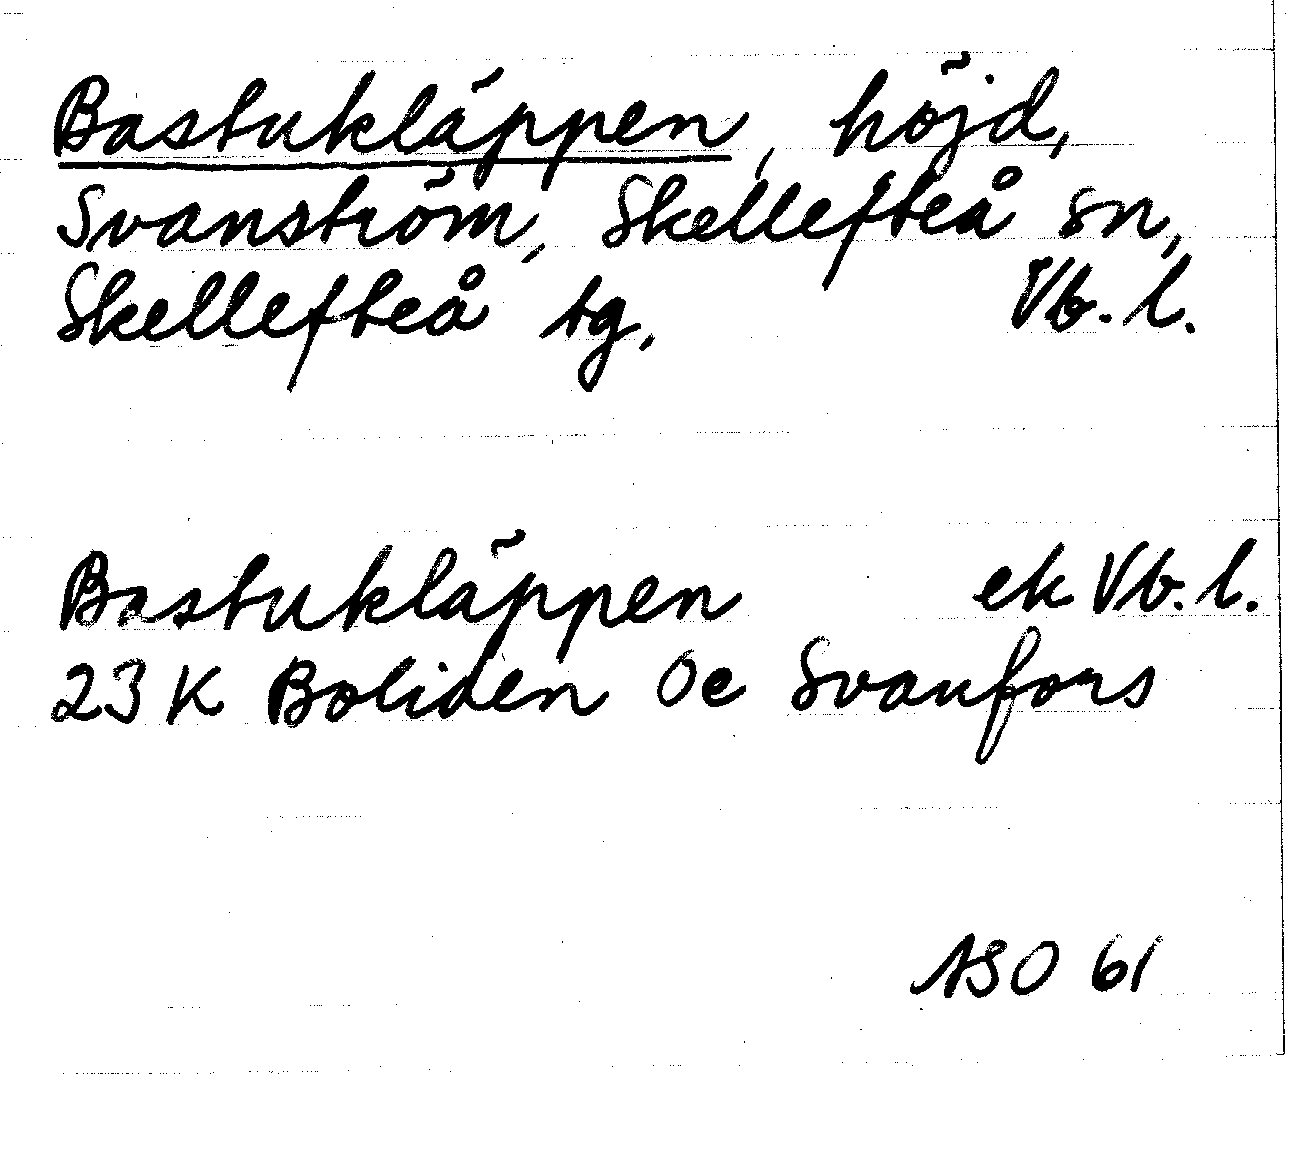 Bastukläppen, höjd,
Svanström, Skellefteå sn,
Skellefteå tg. Vb. l.
Bastukläppen ek Vb. l.
23 K Boliden Oc Svanfors
ASO 61